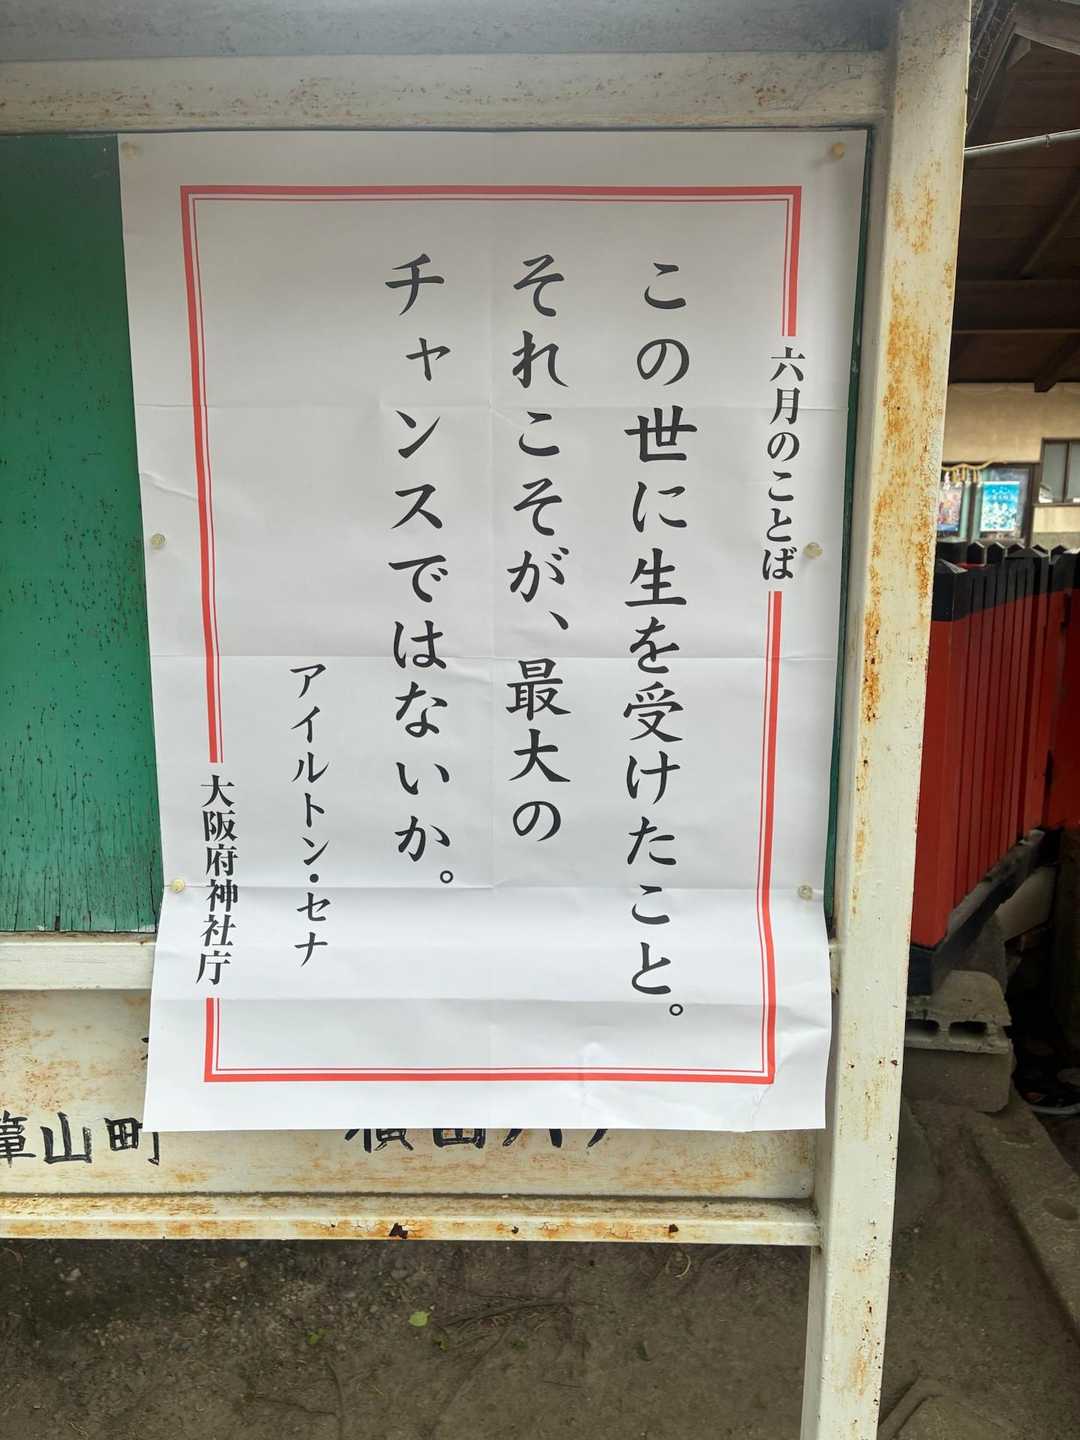 六月のことば
この世に生を受けたこと。
それこそが、最大の
チャンスではないか。
アイルトン・セナ
大阪府神社庁
山町